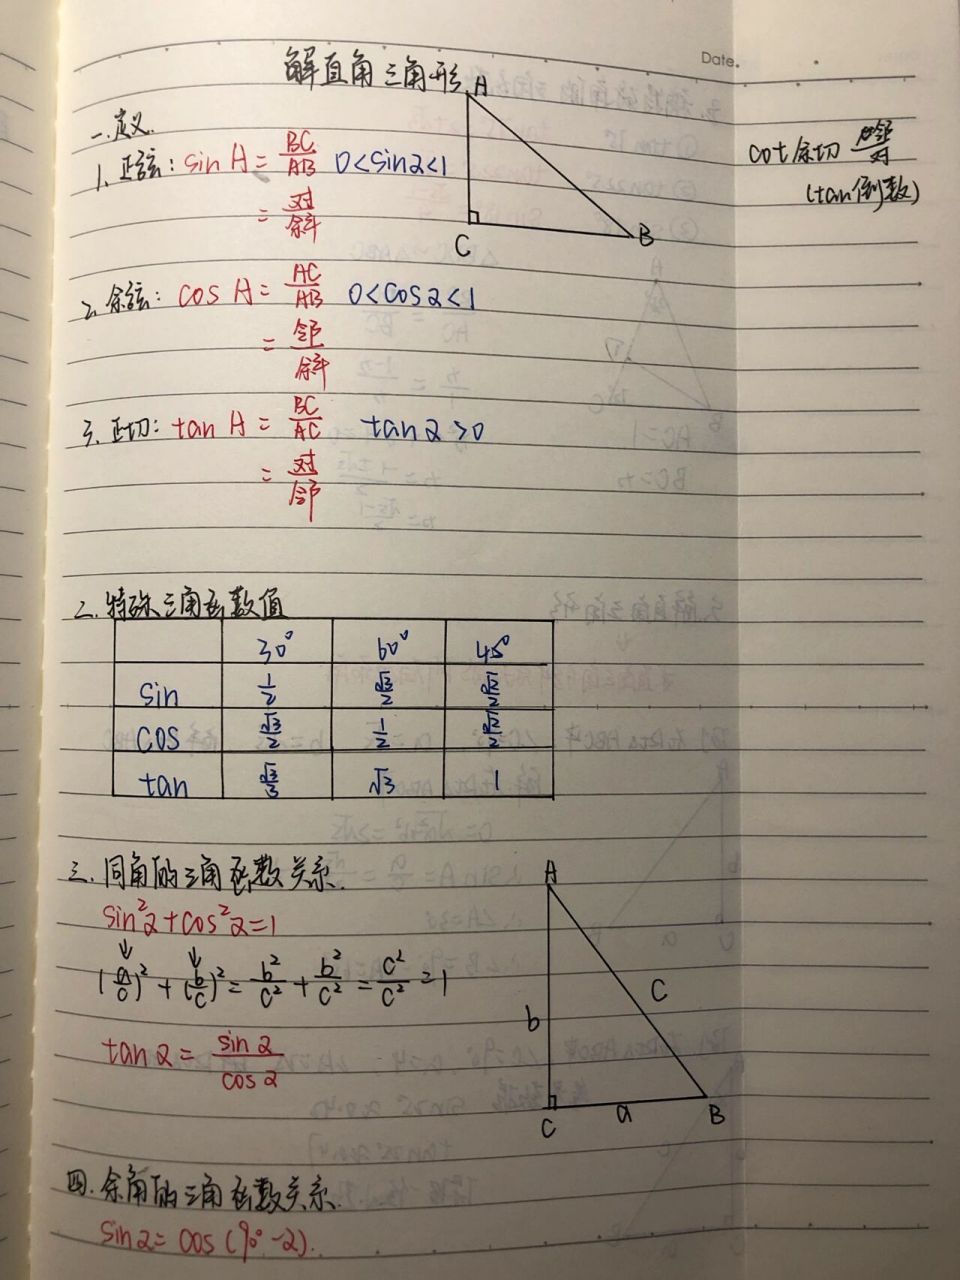 Date.
解直角三角形
一.定义.
1. 正弦: sin A = BC/AB 0<sinα<1
= 对/斜
A
C
B
cot余切 邻/对
(tan倒数)
2. 余弦: cos A = AC/AB 0<cosα<1
= 邻/斜
3. 正切: tan A = BC/AC tanα>0
= 对/邻
二.特殊三角函数值
30° 60° 45°
sin 1/2 √3/2 √2/2
cos √3/2 1/2 √2/2
tan √3/3 √3 1
三.同角的三角函数关系.
sin²α+cos²α=1
(a/c)² + (b/c)² = b²/c² + b²/c² = c²/c² = 1
tanα = sinα/cosα
A
b
C
C
a
B
四.余角的三角函数关系.
sinα = cos(90°-α).